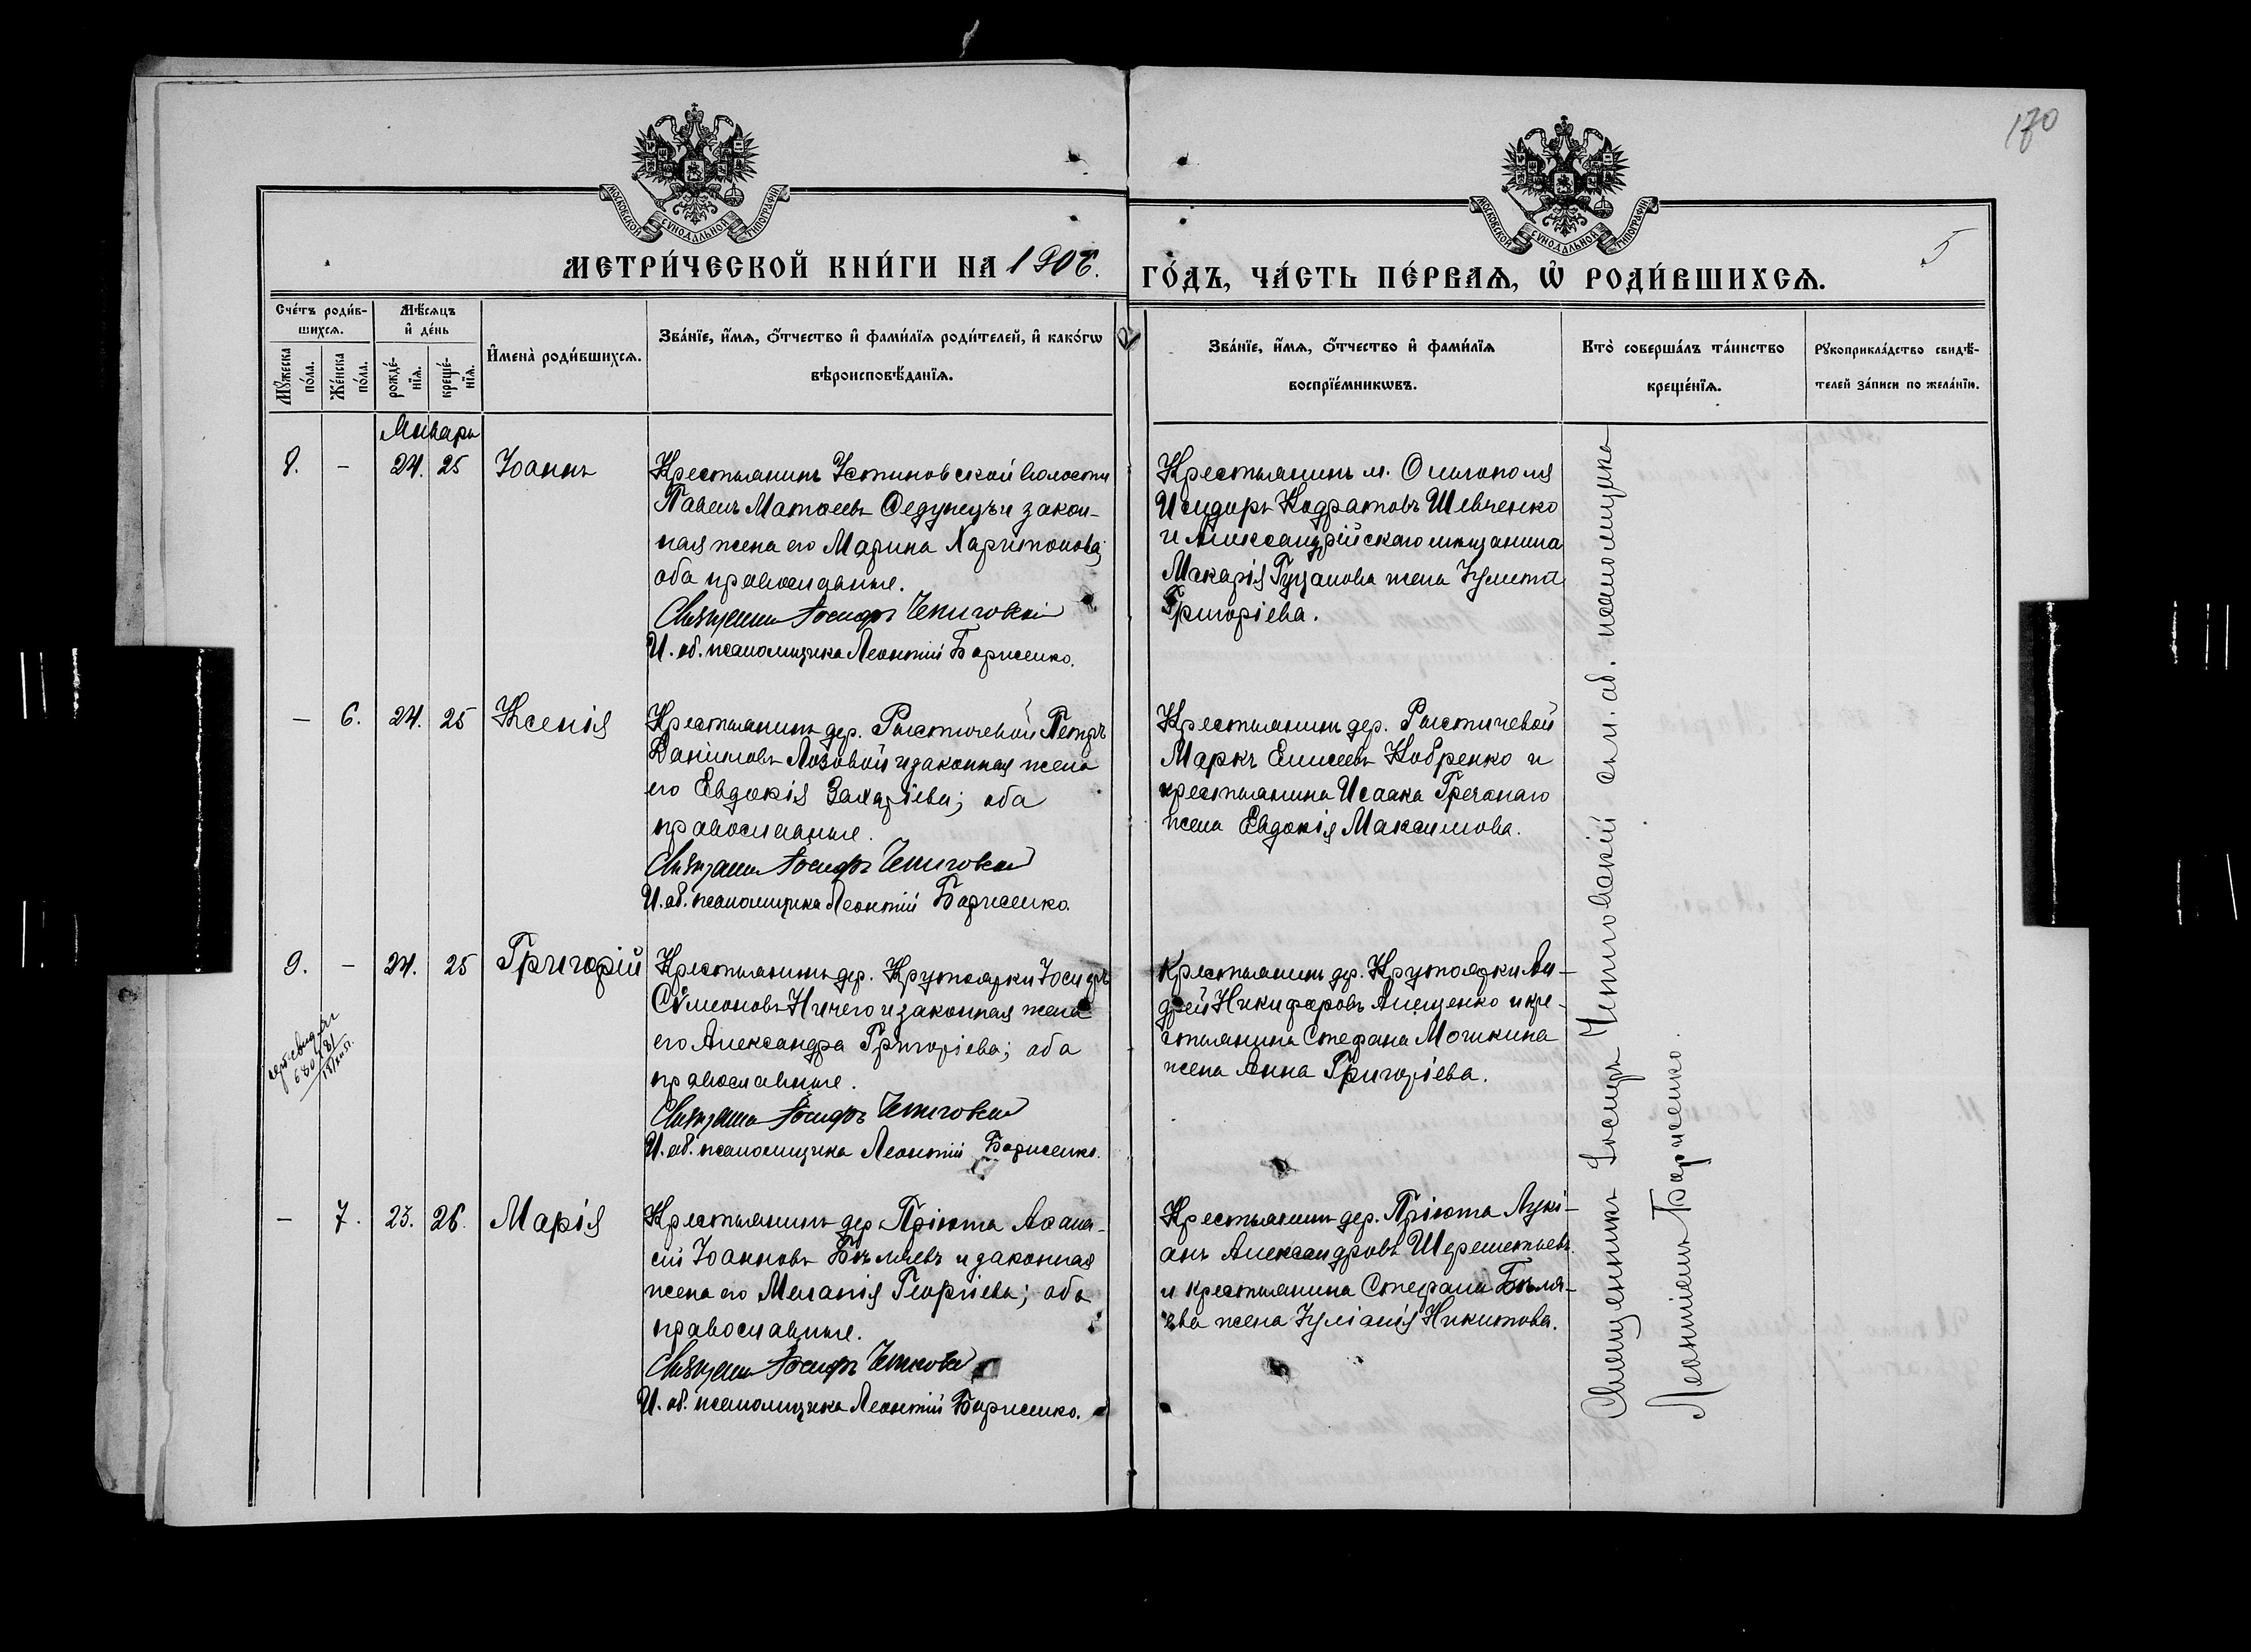 170
МОСКОВСКОЙ СѴНОДАЛЬНОЙ ТИПОГРАФІИ
МОСКОВСКОЙ СѴНОДАЛЬНОЙ ТИПОГРАФІИ
5
МЕТРИ́ЧЕСКОЙ КНИ́ГИ НА 1906.
ГО́ДЪ, ЧА́СТЬ ПЕ́РВАѦ, Ѡ҆ РОДИ́ВШИХСѦ.
Сче́тъ роди́в-
шихсѧ.
Мꙋжеска
по́ла.
Же́нска
по́ла.
Мѣ́сѧцъ
и҆ де́нь
рожде́-
нїѧ.
креще́-
нїѧ.
И҆мена̀ роди́вшихсѧ.
Зва́нїе, и҆́мѧ, ѻ҆́тчество и҆ фами́лїѧ роди́телей, и҆ како́гѡ
вѣроисповѣ́данїѧ.
Зва́нїе, и҆́мѧ, ѻ҆́тчество и҆ фами́лїѧ
воспрїе́мникѡвъ.
Кто̀ соверша́лъ та́инство
креще́нїѧ.
Рꙋкоприкла́дство свидѣ́-
телей за́писи по жела́нїю.
Январь
8. - 24. 25 Іоаннъ
Крестьянинъ Устиновской волости
Павелъ Матѳеевъ Федунецъ и закон-
ная жена его Марина Харитонова;
оба православные.
Священникъ Іосифъ Чепиговскій
И. об. псаломщика Леонтій Борисенко.
Крестьянинъ м. Ольгополя
Исидоръ Кодратовъ Шевченко
и Александрійскаго мещанина
Макарія Гуцанова жена Іулитта
Григоріева.
- 6. 24. 25 Ксенія
Крестьянинъ дер. Рыстичевой Петръ
Даніиловъ Лозовой и законная жена
его Евдокія Захаріева; оба
православные.
Священникъ Іосифъ Чепиговскій
И. об. псаломщика Леонтій Борисенко.
Крестьянинъ дер. Рыстичевой
Маркъ Елисеевъ Кобренко и
крестьянина Исаака Гречанаго
жена Евдокія Максимова.
9. - 24. 25 Григорій
68048
Крестьянинъ дер. Крутоярки Іосифъ
Сѵмеоновъ Ничего и законная жена
его Александра Григоріева; оба
православные.
Священникъ Іосифъ Чепиговскій
И. об. псаломщика Леонтій Борисенко.
Крестьянинъ дер. Крутоярки Ан-
дрей Никифоровъ Анищенко и кре-
стьянина Стефана Мошкина
жена Анна Григоріева.
- 7. 23. 26. Марія
Крестьянинъ дер. Пріюта Аѳана-
сій Іоанновъ Бѣляевъ и законная
жена его Меланія Георгіева; оба
православные.
Священникъ Іосифъ Чепиговскій
И. об. псаломщика Леонтій Борисенко.
Крестьянинъ дер. Пріюта Лукі-
анъ Александровъ Шереметьевъ
и крестьянина Стефана Бѣля-
ева жена Іуліанія Никитова.
Священникъ Іосифъ Чепиговскій съ и. об. псаломщика
Леонтіемъ Борисенко.